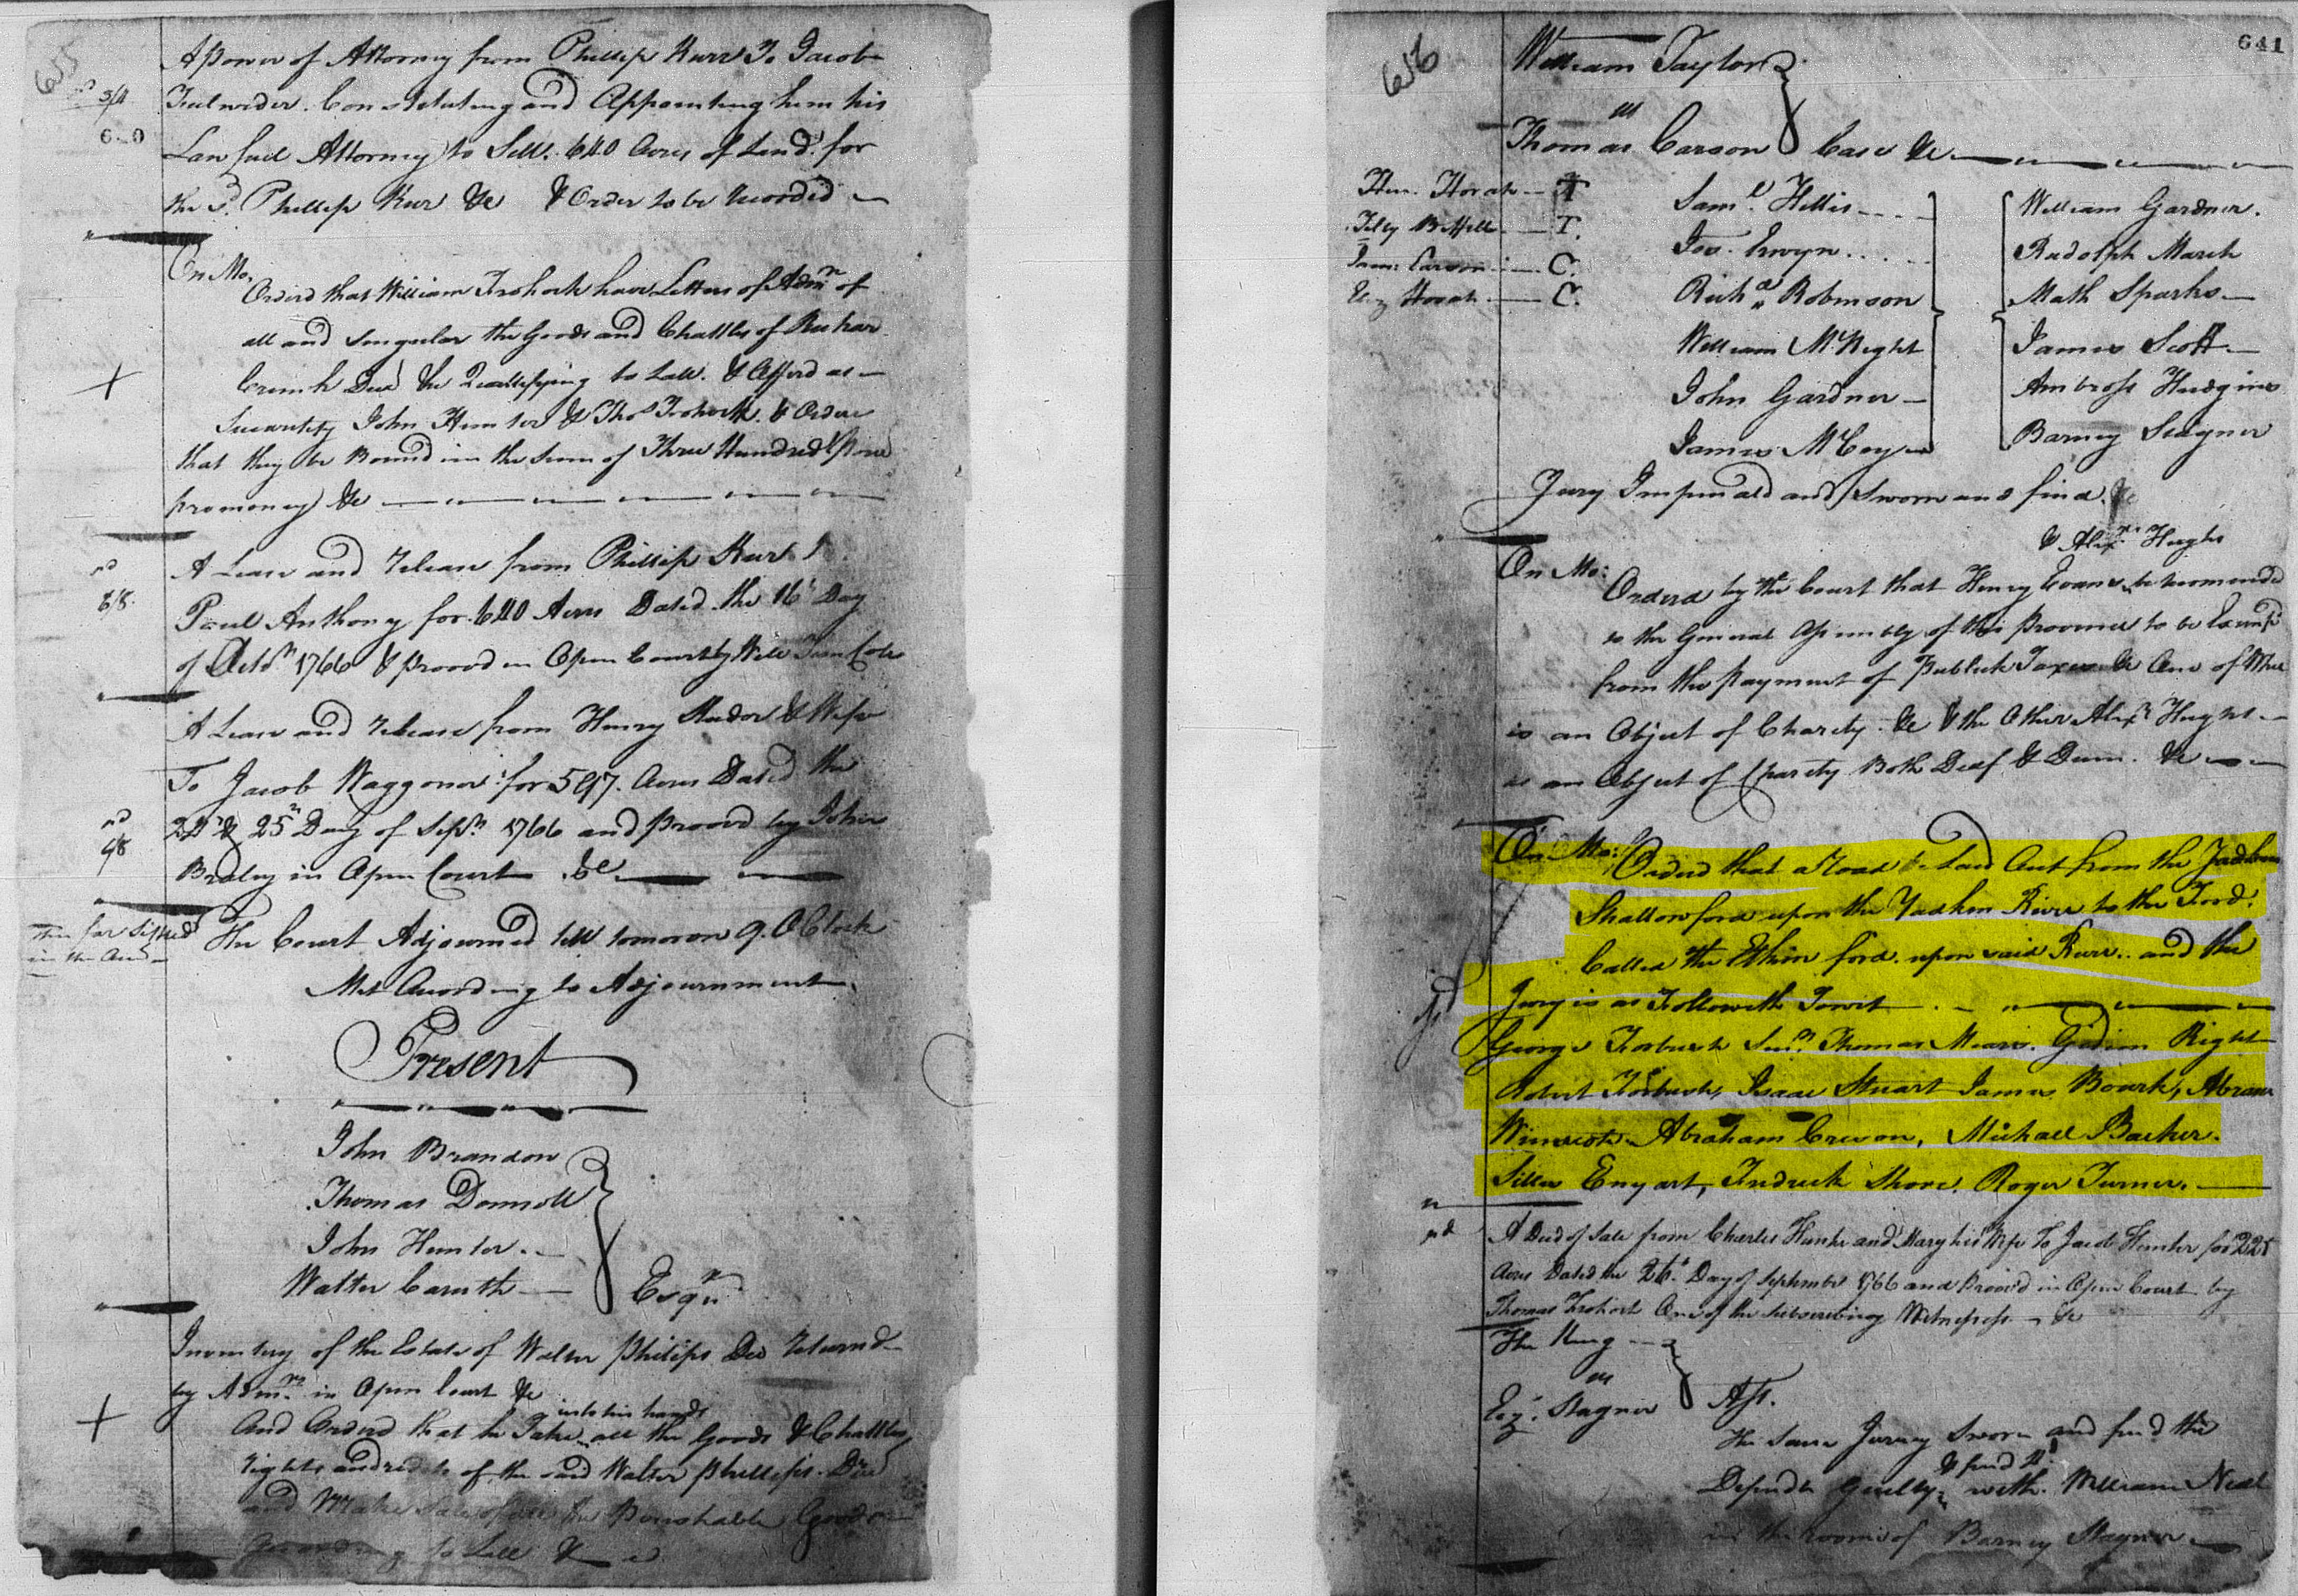 655
A power of Attorney from Phillip Kurr To Jacob
Constituting and Appointing him his
Lawfull Attorney to Sell. 640 Acres of Land. for
the sd. Phillip Kur &c & Order to be recorded
On Mo.
Orderd that William Frohock have Letters of Admn of
all and singular the Goods and Chattles of
Decd he Quallifying to Law. & Afferd as
Security John Hunter & Thos Frohock. & Order
that they be Bound in the Sum of Three Hundred
promoney &c
A Lease and release from Phillip Kur
Paul Anthony for 640 Acres Dated the 16th Day
of Octbr 1766 & proovd in Open Court by Will
A Lease and release from Henry & Wife
To Jacob Waggoner for 597. Acres Dated the
& 25th Day of Sepbr 1766 and proovd by John
Braley in Open Court &c
thus far
The Court Adjourned till tomorow 9. OClock
Met According to Adjournment
Present
John Brandon
Thomas Donnoll
John Hunter
Walter Caruth
Esqrs
Inventory of the Estate of Walter Philips Decd returnd
by Admrs in Open Court &c
into his hands
And Orderd that he Take all the Goods & Chattles
rights and of the said Walter Phillips Decd
and Make Sale of all the Perishable Goods
to Law &
656
641
William Taylor
vs
Thomas Carson Case &c
Hen. Horah T
T.
Jam: Carson C.
Horah C.
Saml. Hillis
Jos. Erwyn
Richd Robinson
William McNight
John Gardner
James McCoy
William Gardner.
Rudolph March
Math Sparks
James Scott
Ambross Hudgins
Barney Stagner
Jury Impanald and Sworn and find &c
& Alexr Hughs
On Mo: Orderd by the Court that Henry Evans be recomended
to the General Assembly of this Province to be Exemp
from the Payment of Publick Taxes &c One of whom
is an Object of Charity &c & the Other Alexr Hughs
is an Object of Charity Both Deaf & Dum. &c
On Mo: Orderd that a Road be Laid Out from the Yadkin
Shallowford upon the Yadkin River to the Ford.
Called the Ford. upon said River. and the
Jury is as Followeth Towit
George Forbush Senr. Thomas Mears. Gidion Right
Robert Forbush, Isaac Stuart James Bourk, Abram
Abraham Creson, Michael Backer.
Silles Enyart, Fredrick Shore. Roger Turner.
A Deed of Sale from Charles Hunter and Mary his Wife To Jacob Hunter for 225
Acres Dated the 26th Day of September 1766 and Proovd in Open Court by
Thomas Frohock One of the Subscribing Witnesses &c
The King
vs
Stagner
The Same Jurey Sworn and find the
& find
Defendt Guilty with. William Neal
in the room of Barney Stagner